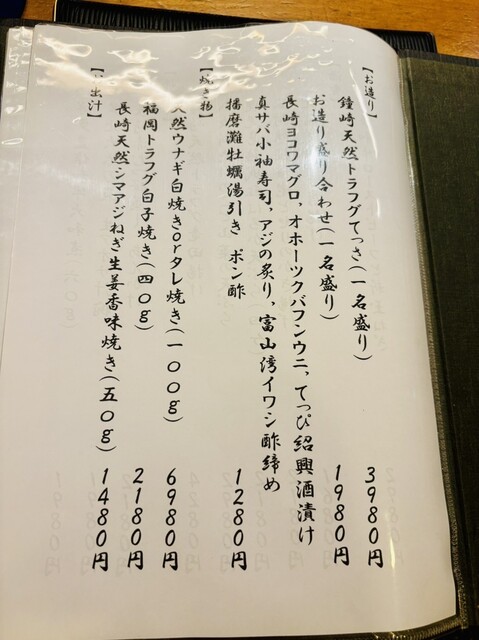 【お造り】
鐘崎天然トラフグてっさ(一名盛り) 3980円
お造り盛り合わせ(一名盛り) 1980円
長崎ヨコワマグロ、オホーツクバフンウニ、てっぴ紹興酒漬け
真サバ小袖寿司、アジの炙り、富山湾イワシ酢締め
播磨灘牡蠣湯引き ポン酢 1280円
【焼き物】
天然ウナギ白焼きorタレ焼き(一〇〇g) 6980円
福岡トラフグ白子焼き(四〇g) 2180円
長崎天然シマアジねぎ生姜香味焼き(五〇g) 1480円
出汁】